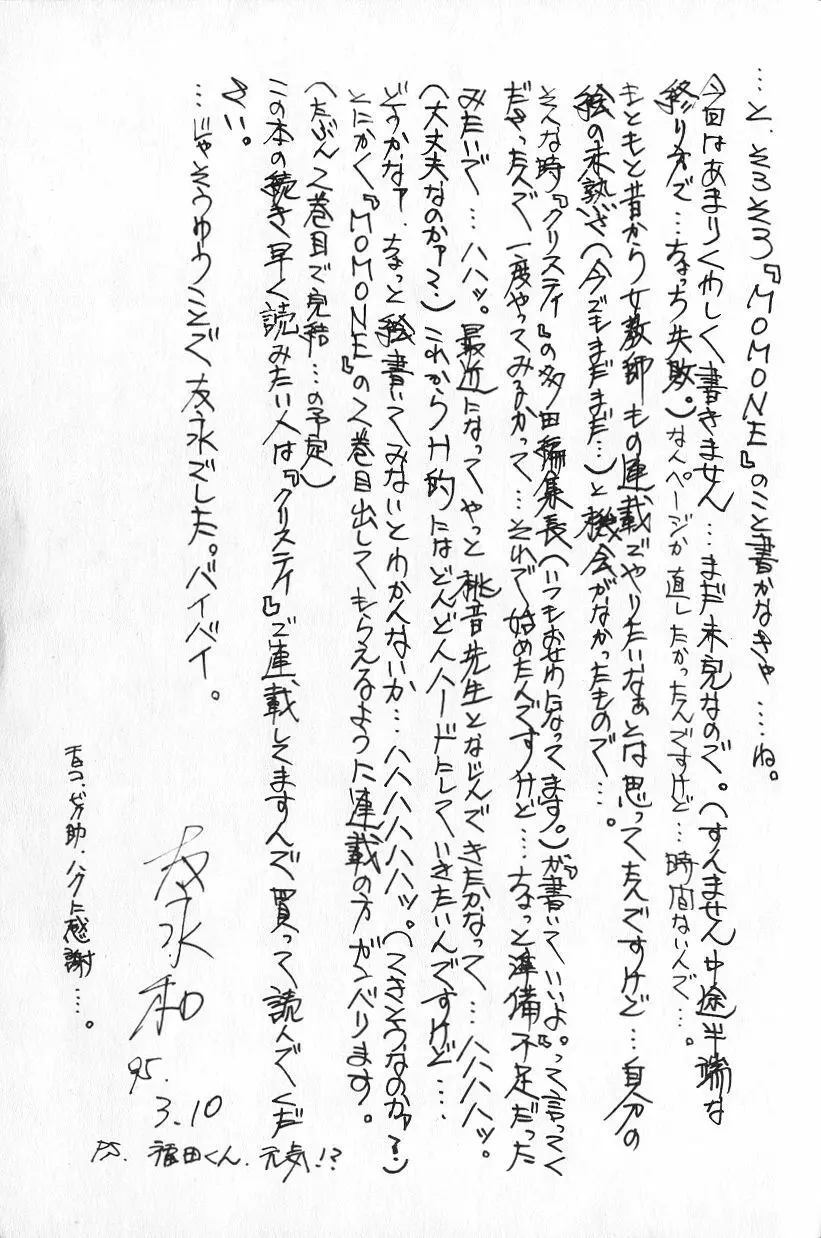 …と、そろそろ『MOMONE』のこと書かなきゃ…ね。
今回はあまりくわしく書きません…まだ未完なので。(すんません中途半端な
終り方で…ちょっち失敗。)なんページか直したかったんですけど…時間ないんで…。
もともと昔から女教師もの連載でやりたいなぁとは思ってたんですけど…自分の
絵の未熟さ(今でもまだまだ…)と機会がなかったもので…。
そんな時『クリスティ』の多田編集長(いつもお世わになってます。)が『書いていいよ。』って言ってく
ださったんで一度やってみるかって…それで始めたんですけど…ちょっと準備不足だった
みたいで…ハハッ。最近になってやっと桃音先生となじんできたかなって…ハハハハッ。
(大丈夫なのかァ?)これからH的にはどんどんハードにしていきたいんですけど…
どうかなァ、ちょっと絵書いてみないとわかんないか…ハハハハハハッ。(てきとうなのかァ?)
とにかく『MOMONE』の2巻目出してもらえるように連載の方ガンバります。
(たぶん2巻目で完結…の予定)
この本の続き早く読みたい人は『クリスティ』で連載してますんで買って読んでくだ
さい。
…じゃそうゆうことで友永でした。バイバイ。
友永和
'95.
3.10
P.S. 福田くん、元気!?
助、ハクに感謝…。